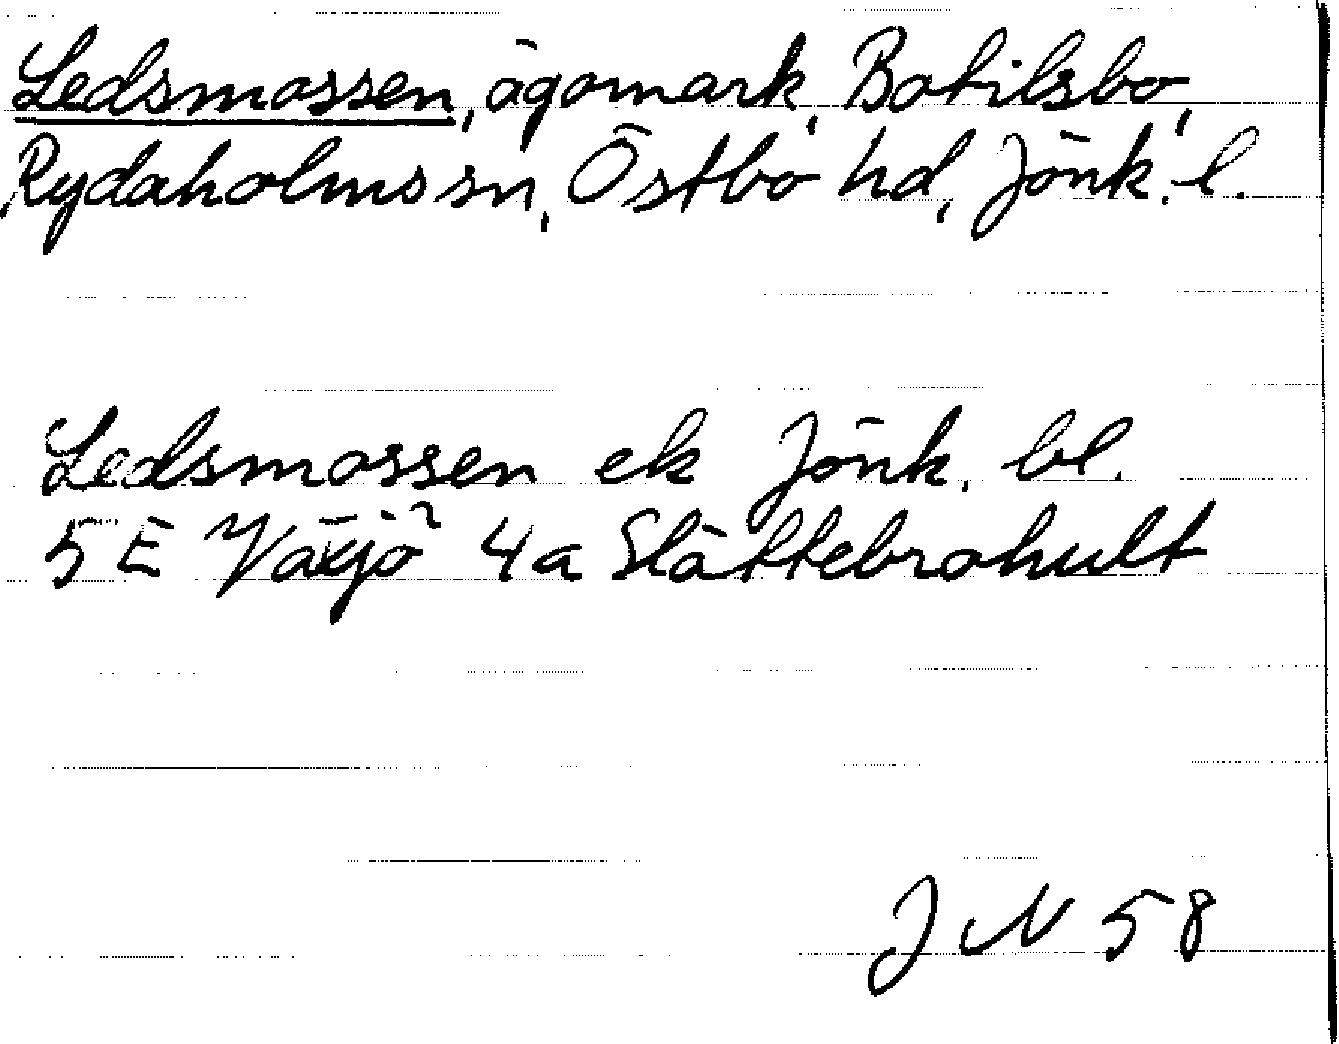 Ledsmossen, ägomark, Botilsbo,
Rydaholms sn, Östbo hd, Jönk. l.
Ledsmossen ek Jönk. bl.
5 E Växjö 4a Slättebrohult
J N 58